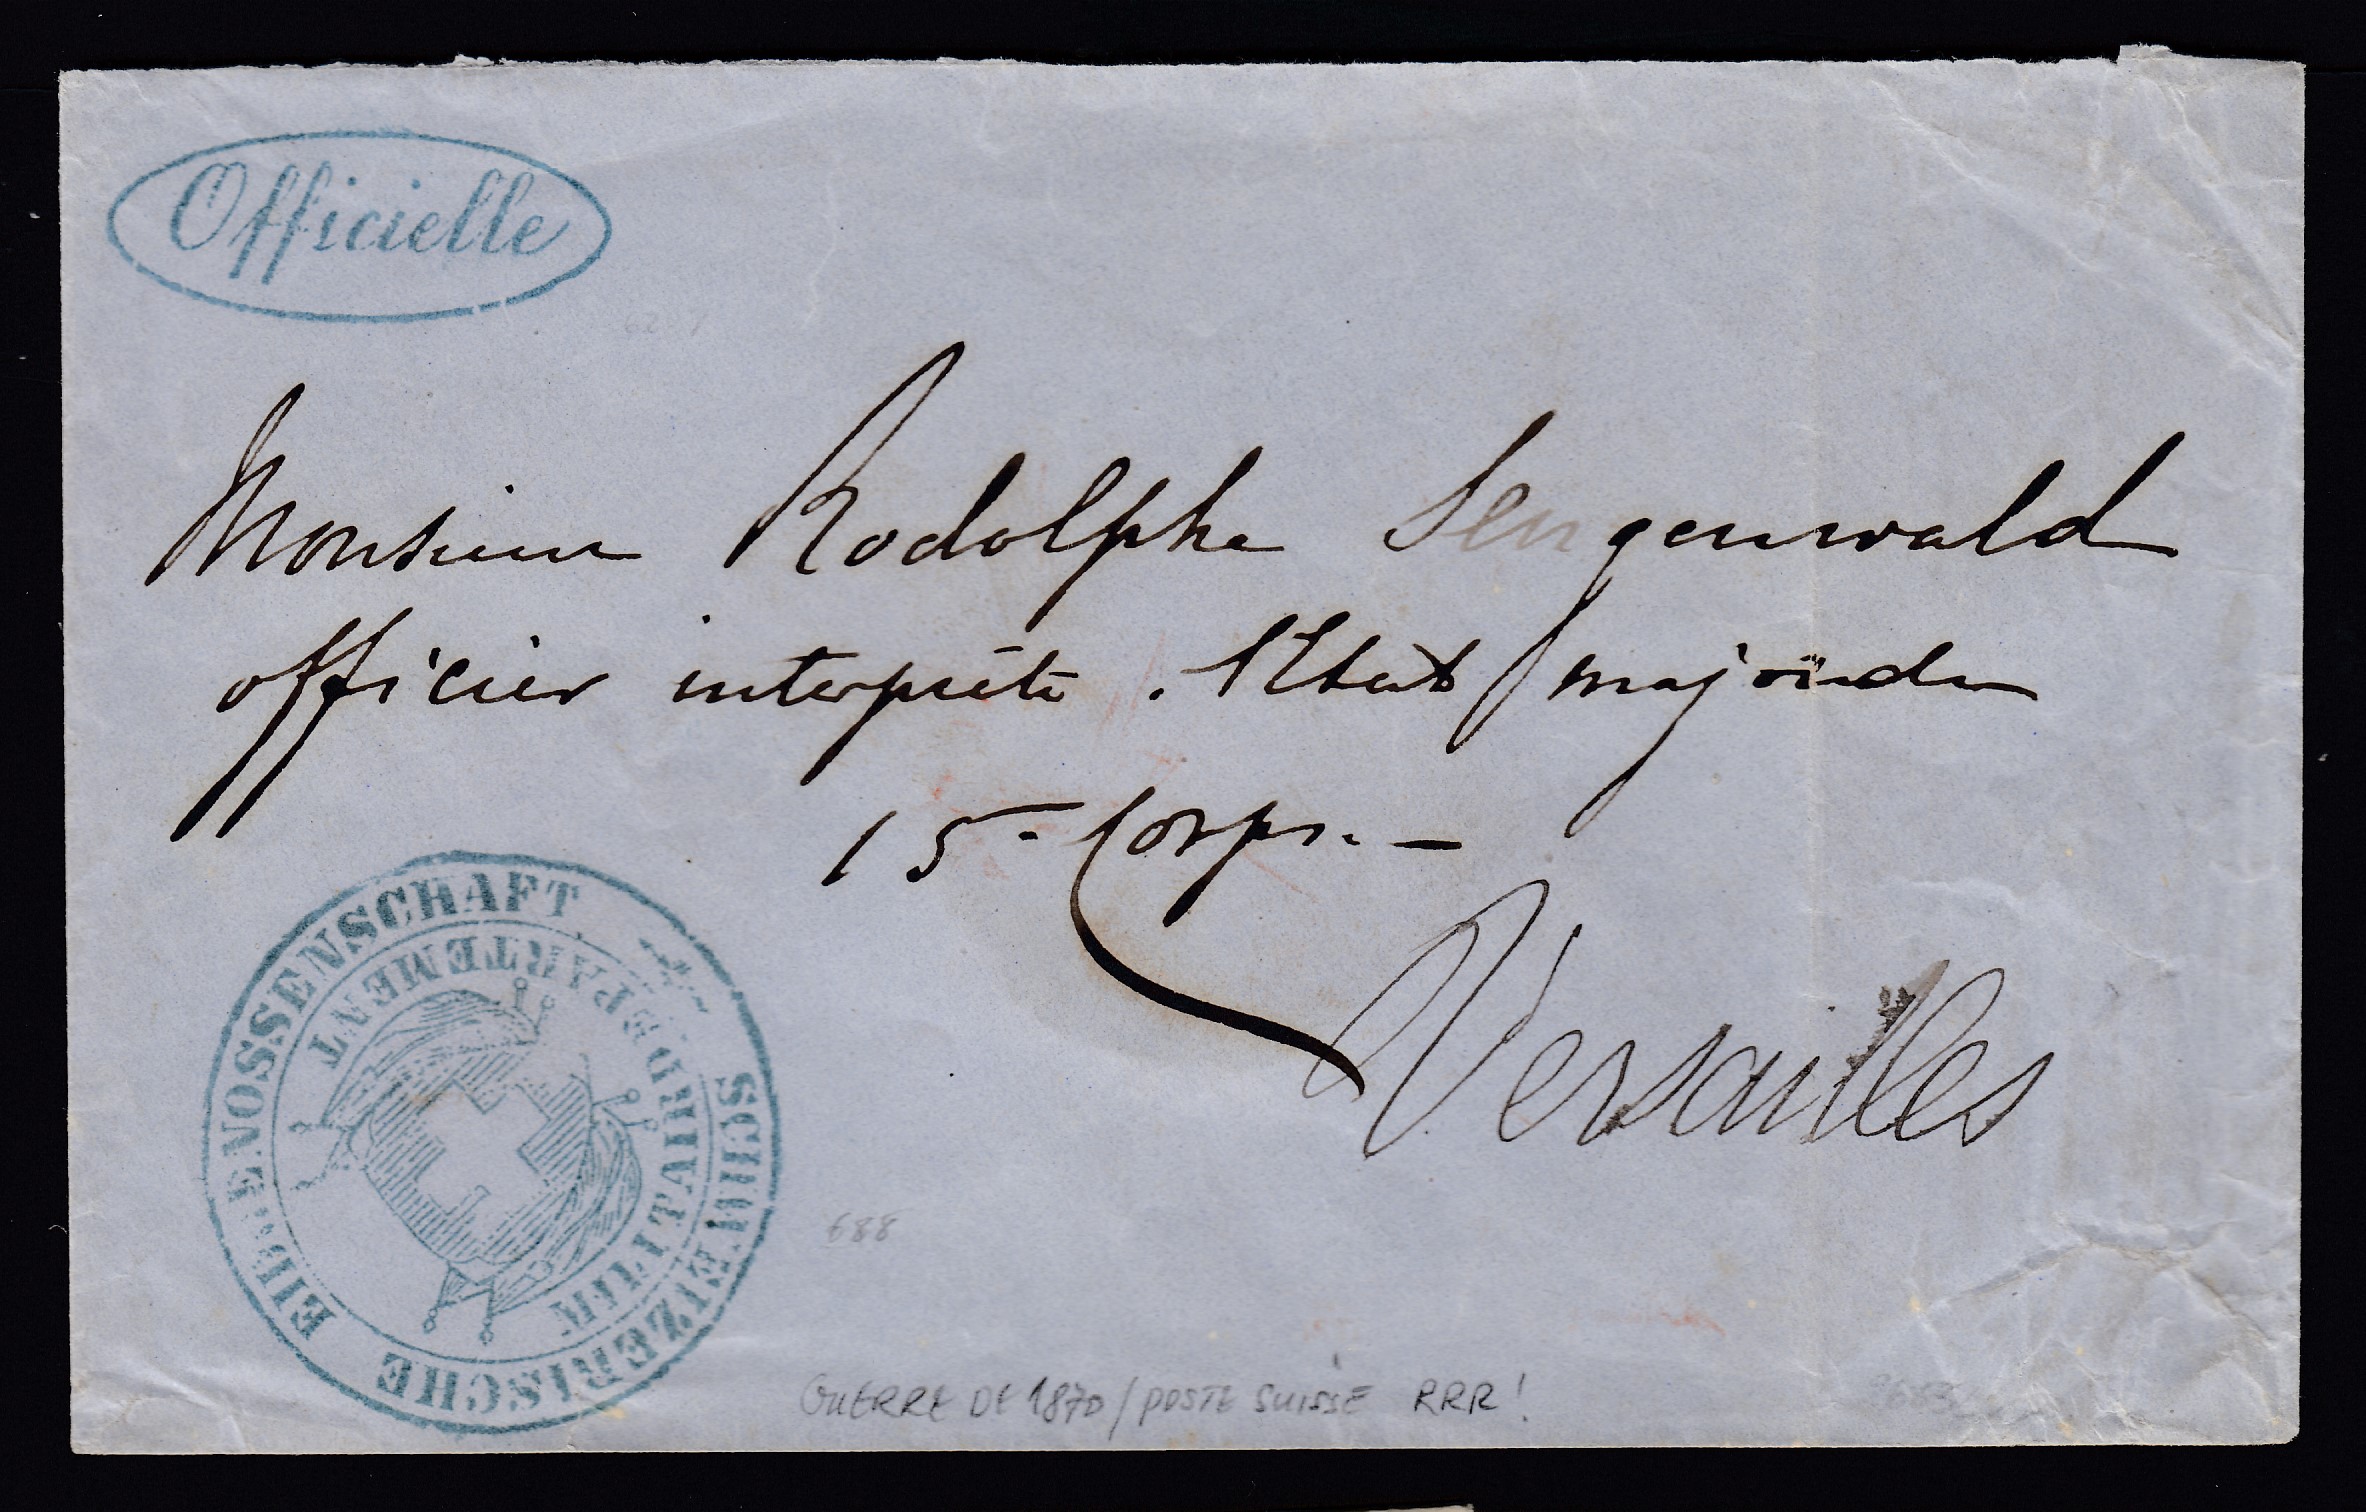 Officielle
Monsieur Rodolphe Sengenwald
officier interprète. l'Etat major du
15e Corps. —
Versailles
SCHWEIZERISCHE EIDGENOSSENSCHAFT
MILITAIRDEPARTEMENT
688
GUERRE DE 1870 / POSTE SUISSE RRR!